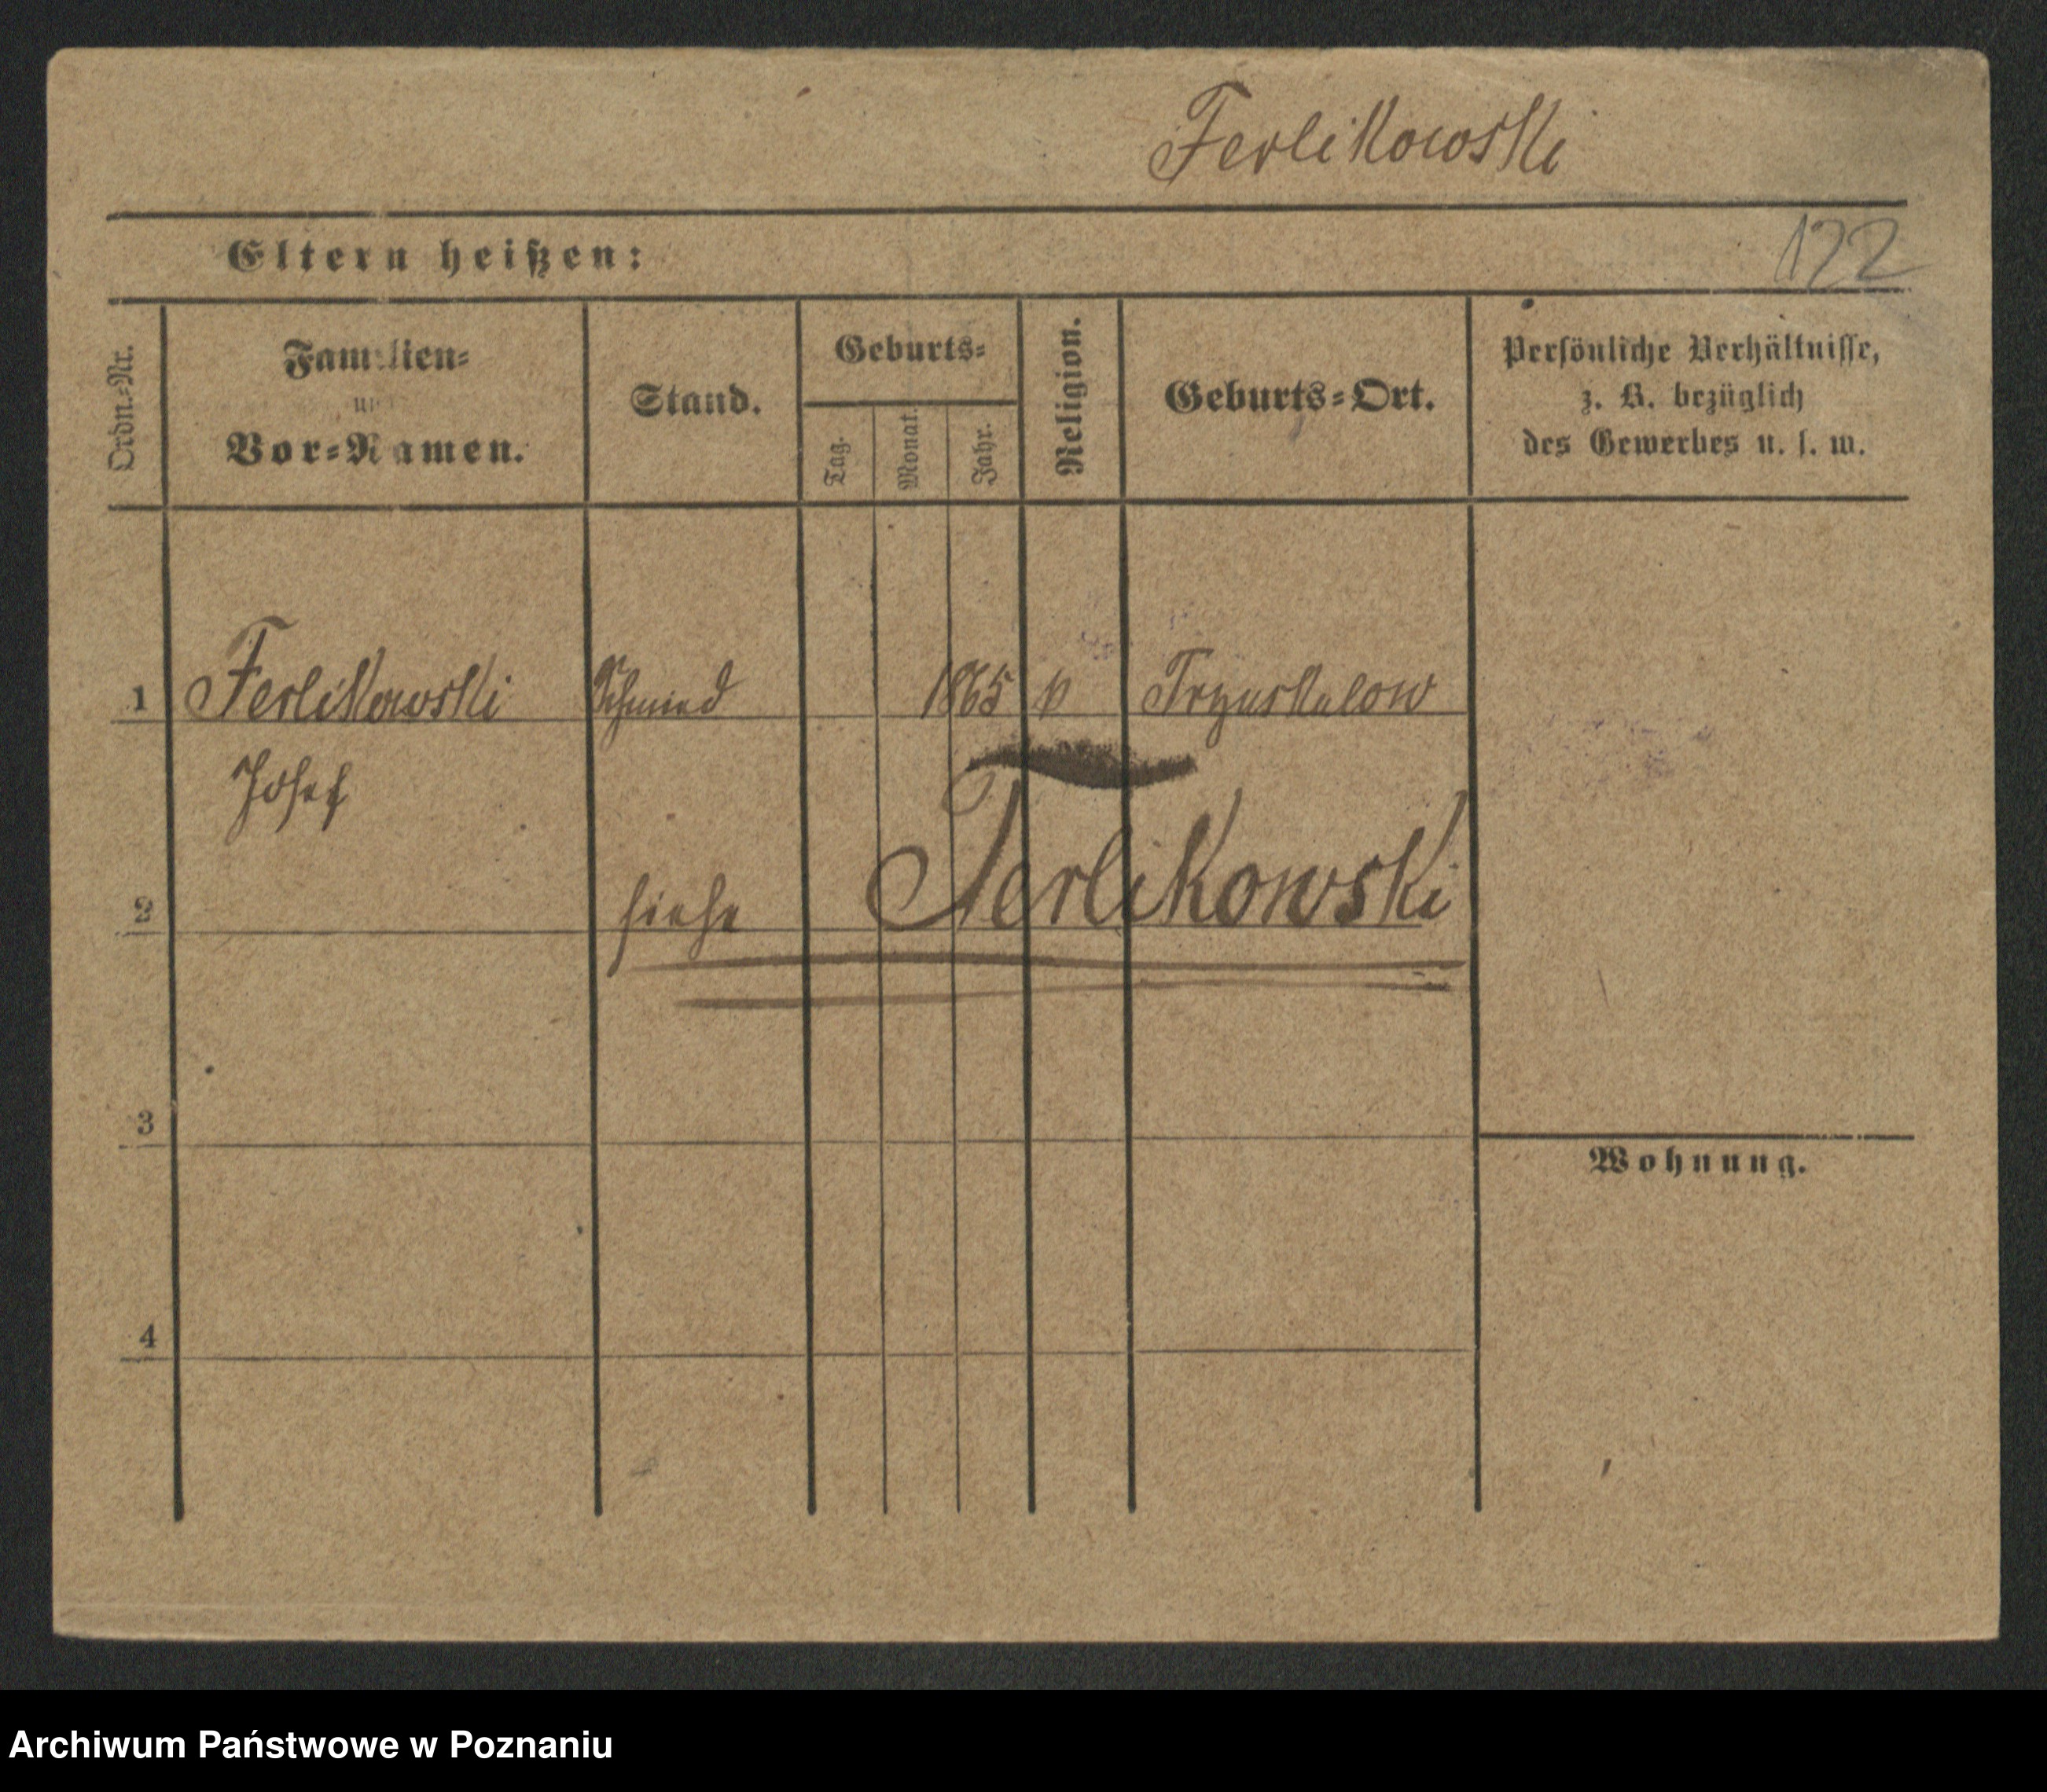 Ferlikowski
Eltern heißen:
122
Ordn.-Nr.
Familien-
und
Vor-Namen.
Stand.
Geburts-
Tag.
Monat.
Jahr.
Religion.
Geburts-Ort.
Persönliche Verhältnisse,
z. B. bezüglich
des Gewerbes u. s. w.
1 Ferlikowski Schmied 1865 k Tryuskulow
Josef
2 siehe Terlikowski
3
Wohnung.
4
Archiwum Państwowe w Poznaniu